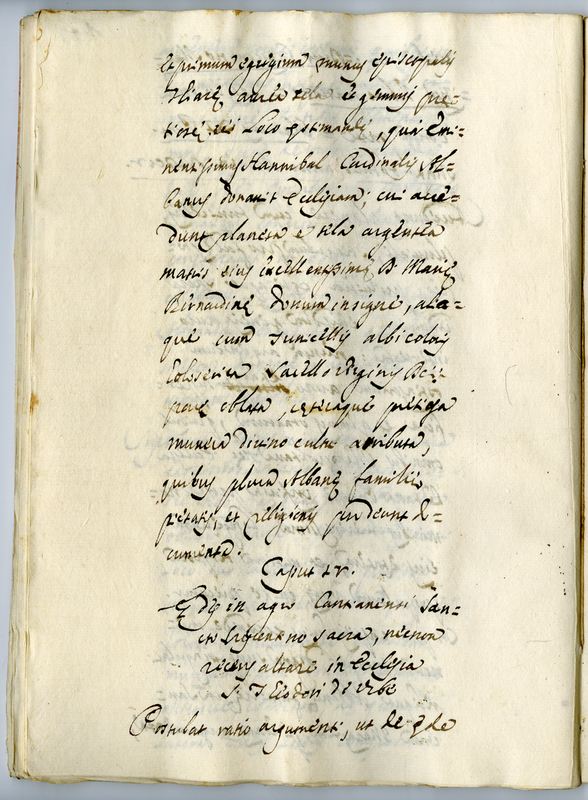 et primum egregium munus episcopalis
Thiaræ aurea tela et gemmis pre=
tiosę loco estimandi, qua Emi=
nentissimus Hannibal Cardinalis Al=
banus donavit Ecclesiam; cui acce=
dunt planeta e tela argentea
matris eius excellentissimę D. Marię
Bernardinę donum insigne, alia=
que cum tunicellis albi coloris
holoserica Sacello Virginis
oblata, cęteraque pretiosa
munera divino cultui attributa,
quibus plura Albanę familię
pietatis, et religionis prodeunt do=
cumenta.
Caput IV.
Ędis in agro Cantianensi San=
cto Crescentino sacra, necnon
recens altare in Ecclesia
S. Theodori de Urbe
Postulat ratio argumenti, ut de ęde